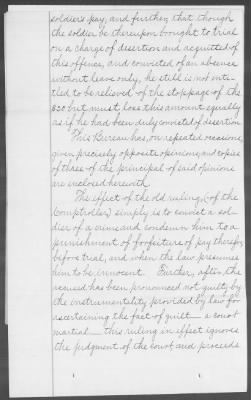 soldier's pay, and further, that though
the soldier be thereupon brought to trial
on a charge of desertion and acquitted of
this offence, and convicted of an absence
without leave only, he still is not enti-
tled to be relieved of the stoppage of the
$20 but must lose this amount equally
as if he had been duly convicted of desertion.
This Bureau has, on repeated occasions,
given precisely opposite opinions, and copies
of three of the principal of said opinions
are enclosed herewith.
The effect of the old ruling, (of the
Comptroller) simply is to convict a sol-
dier of a crime and condemn him to a
punishment of forfeiture of pay therefor,
before trial, and when the law presumes
him to be innocent. Further, after the
accused has been pronounced not guilty by
the instrumentality provided by law for
ascertaining the fact of guilt — a court
martial — this ruling in effect ignores
the judgment of the court and proceeds